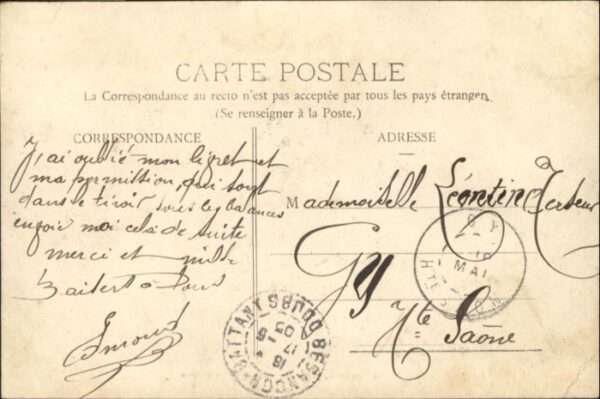 CARTE POSTALE
La Correspondance au recto n'est pas acceptée par tous les pays étrangers
(Se renseigner à la Poste.)
CORRESPONDANCE
J'ai oublié mon livret et
ma permission, qui sont
dans le tiroir sous les balances
envoie moi cela de suite
merci et mille
Baisers à tous
ADRESSE
Mademoiselle Léontine
Gy
Hte Saône
GY
MAI
BESANÇON-BATTANT DOUBS